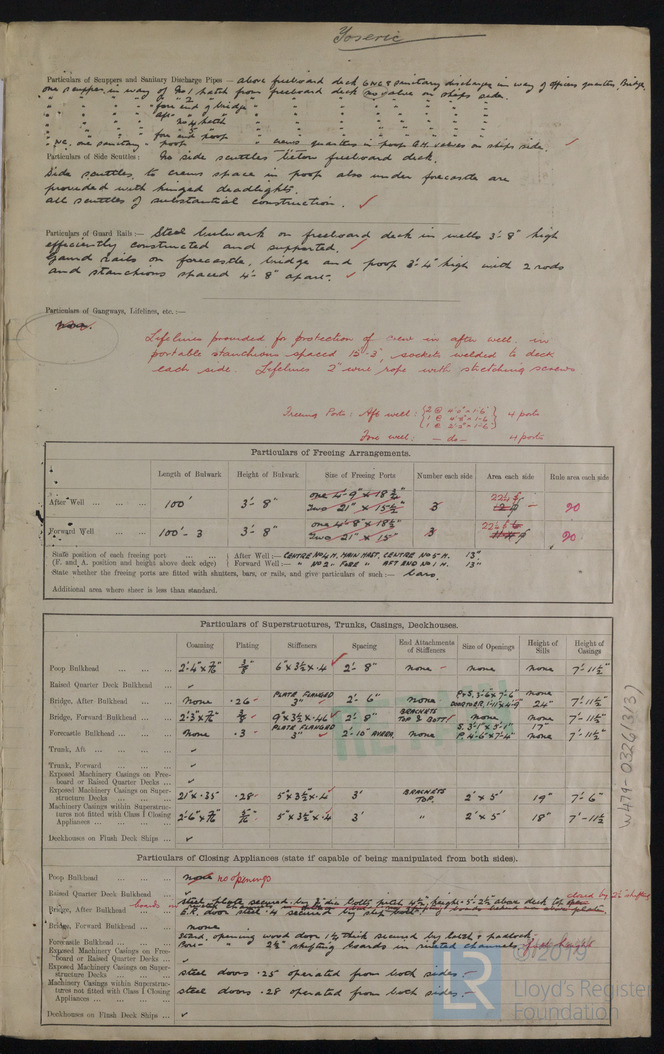 Yoseric
Particulars of Scuppers and Sanitary Discharge Pipes — above freeboard deck 6 W.C. & sanitary discharges in way of officers quarters, Bridge.
one scupper in way of No 1 hatch from freeboard deck no valve on ships side.
" " " " 2 " " " " " " "
" " " fore end of bridge " " " " "
" " " aft " " " " " " "
" " " No 4 hatch " " " " "
" " " fore end poop " " " " "
" W.C. one sanitary " poop " crews quarters in poop G.M. valves on ships side.
Particulars of Side Scuttles: No side scuttles below freeboard deck.
Side scuttles to crews space in poop also under forecastle are
provided with hinged deadlights.
all scuttles of substantial construction.
Particulars of Guard Rails:— Steel bulwark on freeboard deck in wells 3'-8" high
efficiently constructed and supported.
Guard rails on forecastle, bridge and poop 3'-4" high with 2 rods
and stanchions spaced 4'-8" apart.
Particulars of Gangways, Lifelines, etc.:—
none.
Lifelines provided for protection of crew in after well, in
portable stanchions spaced 15'-3", sockets welded to deck
each side. Lifelines 2" wire rope with stretching screws
Freeing Ports: Aft well: 4 ports
Fore well: — do — 4 ports
Particulars of Freeing Arrangements.
Length of Bulwark Height of Bulwark Size of Freeing Ports Number each side Area each side Rule area each side
After Well 100' 3'-8" one 4'-9" x 18 3/4" Two 21" x 15 1/2" 3 20
Forward Well 100'-3 3'-8" one 4'-8" x 18 1/2" Two 21" x 15" 3 20
State position of each freeing port After Well:— CENTRE No 4 H. MAIN MAST, CENTRE No 5 H. 13"
(F. and A. position and height above deck edge) Forward Well:— " No 2 " FORE " AFT END No 1 H. 13"
State whether the freeing ports are fitted with shutters, bars, or rails, and give particulars of such:— bars
Additional area where sheer is less than standard.
Particulars of Superstructures, Trunks, Casings, Deckhouses.
Coaming Plating Stiffeners Spacing End Attachments of Stiffeners Size of Openings Height of Sills Height of Casings
Poop Bulkhead 2'-4" x 7/16" 3/8 6" x 3 1/2 x .4 2'-8" none none none 7'-11 1/2"
Raised Quarter Deck Bulkhead
Bridge, After Bulkhead none .26 PLATE FLANGED 3" 2'-6" none P+S, 3'-6 x 7'-6" 24" 7'-11 1/2"
Bridge, Forward Bulkhead 2'-3" x 7/16" 3/8 9" x 3 1/2 x .46 2'-8" BRACKETS TOP & BOTT none none 7'-11 1/2"
Forecastle Bulkhead none .3 PLATE FLANGED 3" 2'-10" none S. 3'-1" x 5'-1" P. 4'-6" x 7'-4" 17" none 7'-11 1/2"
Trunk, Aft
Trunk, Forward
Exposed Machinery Casings on Freeboard or Raised Quarter Decks
Exposed Machinery Casings on Superstructure Decks 21" x .35 .28 5" x 3 1/2" x .4" 3' BRACKETS TOP. 2' x 5' 19" 7'-6"
Machinery Casings within Superstructures not fitted with Class I Closing Appliances 2'-6" x 7/16" 5/16" 5" x 3 1/2" x .4 3' " 2' x 5' 18" 7'-11 1/2
Deckhouses on Flush Deck Ships
Particulars of Closing Appliances (state if capable of being manipulated from both sides).
Poop Bulkhead none no openings
Raised Quarter Deck Bulkhead
Bridge, After Bulkhead E.R. door steel .4 secured by slip bolts.
Bridge, Forward Bulkhead none
Forecastle Bulkhead Stard, opening wood door 1 1/2 thick secured by latch & padlock.
Port " " 2 1/2" shifting boards in riveted channels, full height
Exposed Machinery Casings on Freeboard or Raised Quarter Decks
Exposed Machinery Casings on Superstructure Decks steel doors .25 operated from both sides.
Machinery Casings within Superstructures not fitted with Class I Closing Appliances steel doors .28 operated from both sides.
Deckhouses on Flush Deck Ships
W479-0326(3/3)
LR
© 2019
Lloyd's Register
Foundation